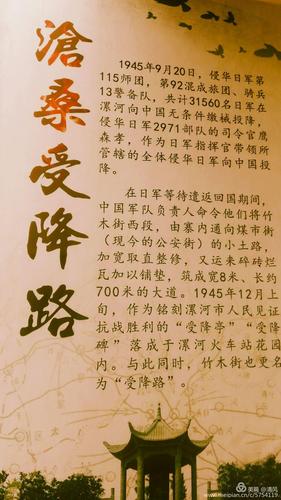 滄桑受降路
1945年9月20日，侵华日军第
115师团，第92混成旅团、骑兵
13警备队，共计31560名日军在
漯河向中国无条件缴械投降，
侵华日军2971部队的司令官鹰
森孝，作为日军指挥官带领所
管辖的全体侵华日军向中国投
降。
在日军等待遣返回国期间，
中国军队负责人命令他们将竹
木街西段，由寨内通向煤市街
（现今的公安街）的小土路，
加宽取直整修，又运来碎砖烂
瓦加以铺垫，筑成宽8米、长约
700米的大道。1945年12月上
旬，作为铭刻漯河市人民见证
抗战胜利的“受降亭”“受降
碑”落成于漯河火车站花园
内。与此同时，竹木街也更名
为“受降路”。
美篇@清风
www.meipian.cn/c/5754119